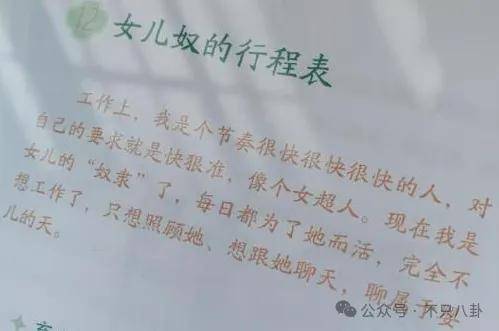 12
女儿奴的行程表
工作上，我是个节奏很快很快很快的人，对
自己的要求就是快狠准，像个女超人。现在我是
女儿的“奴隶”了，每日都为了她而活，完全不
想工作了，只想照顾她、想跟她聊天，聊属于婴
儿的天。
公众号·不只八卦